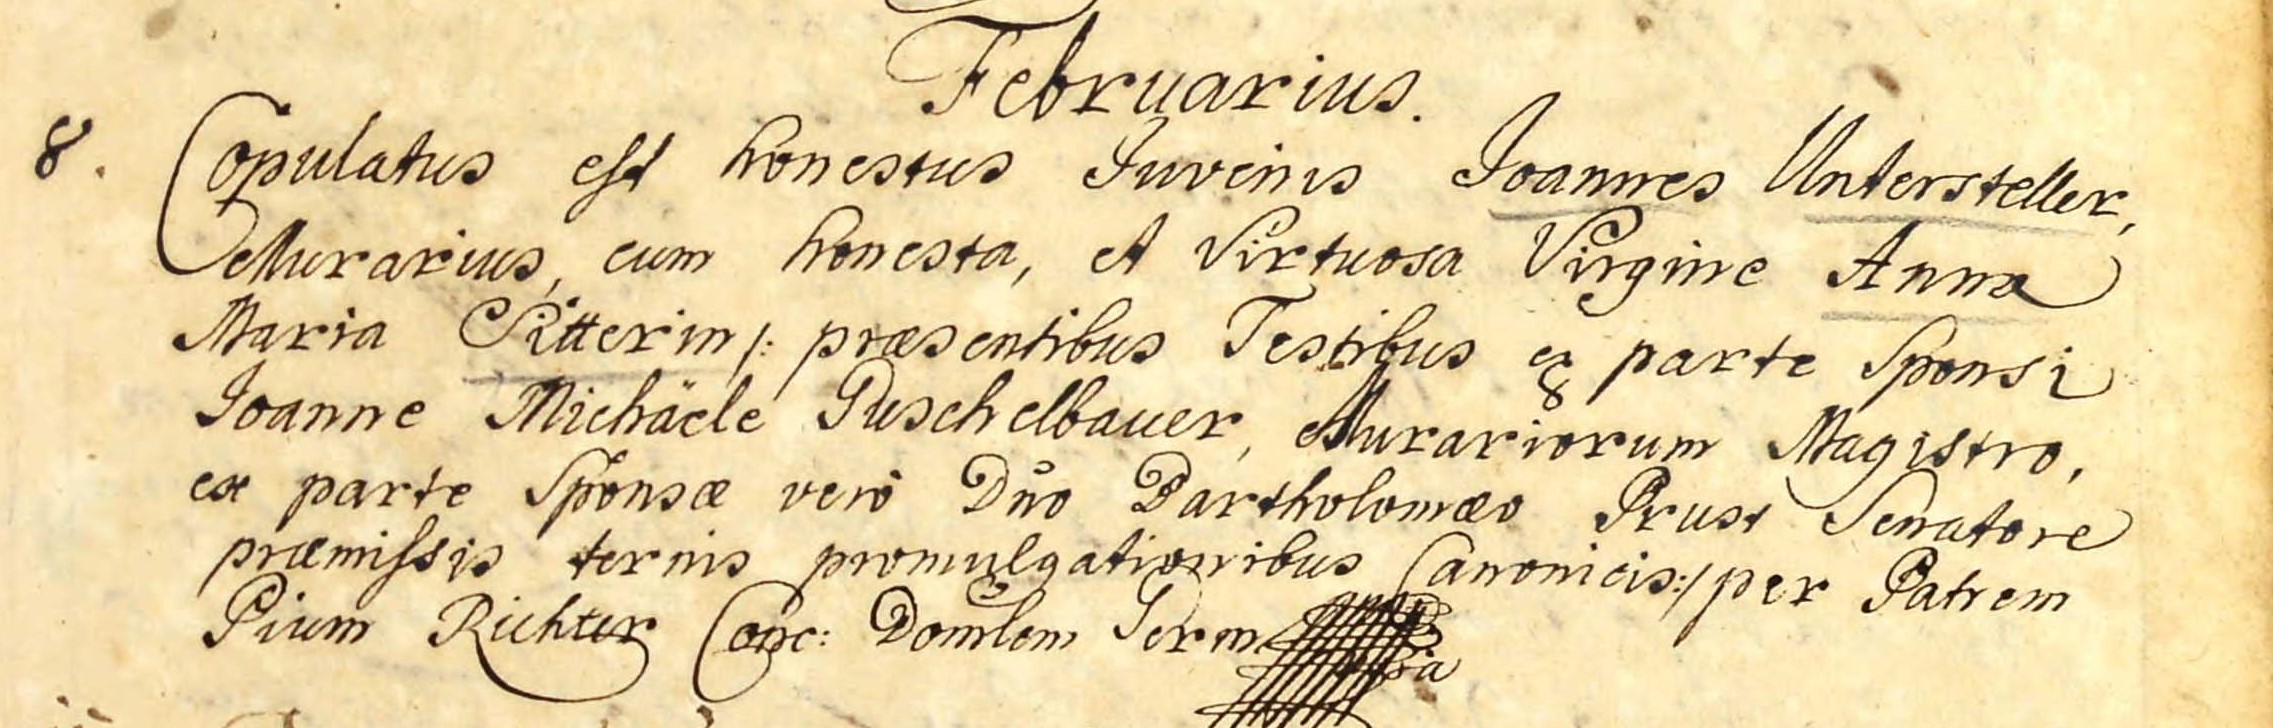 Februarius.
8. Copulatus est honestus Iuvenis Ioannes Untersteller,
Murarius, cum honesta, et Virtuosa Virgine Anna
Maria Sitterin /: præsentibus Testibus ex parte Sponsi
Ioanne Michäele Puschelbauer, Murariorum Magistro,
ex parte Sponsæ verò Dño Bartholomæo Prust Senatore
præmissis ternis promulgationibus Canonicis :/ per Patrem
Pium Richter Conc: Domlem Germ